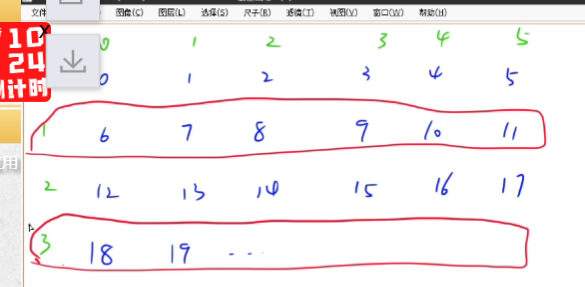 图像(C) 图层(L) 选择(S) 尺子(B) 滤镜(T) 视图(V) 窗口(W) 帮助(H)
10
24
计时
0 1 2 3 4 5
0 1 2 3 4 5
1 6 7 8 9 10 11
2 12 13 14 15 16 17
3 18 19 ...
用